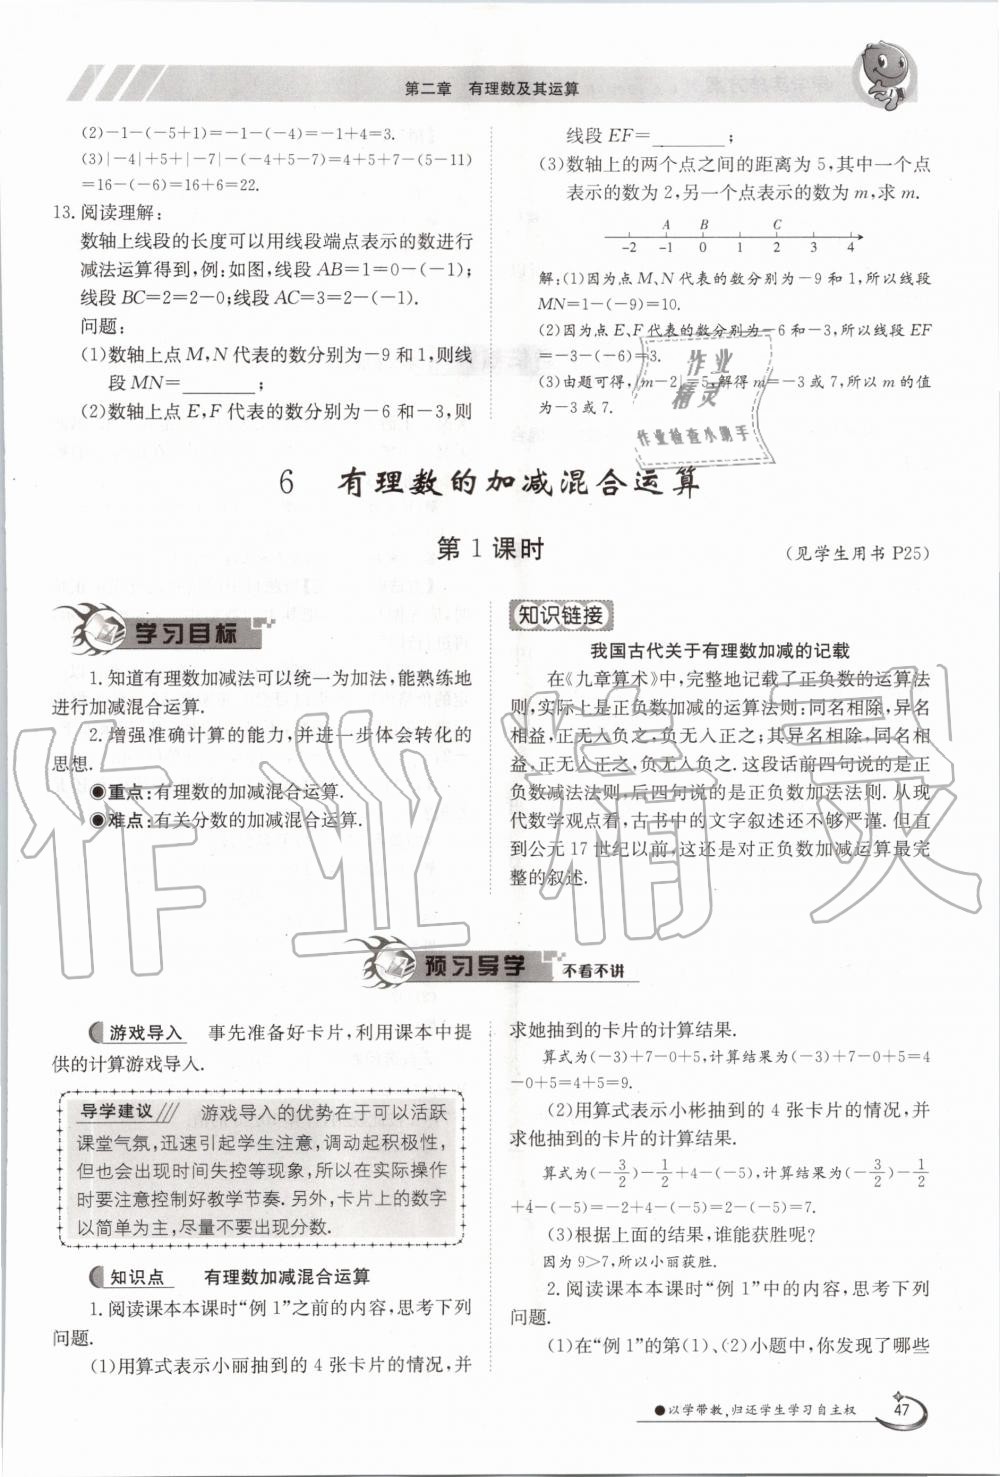 第二章　有理数及其运算
(2)-1-(-5+1)=-1-(-4)=-1+4=3.
(3)|-4|+5+|-7|-(-4+5-7)=4+5+7-(5-11)
=16-(-6)=16+6=22.
13.阅读理解:
数轴上线段的长度可以用线段端点表示的数进行
减法运算得到,例:如图,线段AB=1=0-(-1);
线段BC=2=2-0;线段AC=3=2-(-1).
问题:
(1)数轴上点M,N代表的数分别为-9和1,则线
段MN=________;
(2)数轴上点E,F代表的数分别为-6和-3,则
线段EF=________;
(3)数轴上的两个点之间的距离为5,其中一个点
表示的数为2,另一个点表示的数为m,求m.
A B C
-2 -1 0 1 2 3 4
解:(1)因为点M、N代表的数分别为-9和1,所以线段
MN=1-(-9)=10.
(2)因为点E、F代表的数分别为-6和-3,所以线段EF
=-3-(-6)=3.
(3)由题可得,|m-2|=5,解得m=-3或7,所以m的值
为-3或7.
作业
精灵
作业检查小助手
6　有理数的加减混合运算
第1课时
(见学生用书P25)
学习目标
1.知道有理数加减法可以统一为加法,能熟练地
进行加减混合运算.
2.增强准确计算的能力,并进一步体会转化的
思想.
◉重点:有理数的加减混合运算.
◉难点:有关分数的加减混合运算.
知识链接
我国古代关于有理数加减的记载
在《九章算术》中,完整地记载了正负数的运算法
则,实际上是正负数加减的运算法则:同名相除,异名
相益,正无入负之,负无入正之;其异名相除,同名相
益,正无入正之,负无入负之. 这段话前四句说的是正
负数减法法则,后四句说的是正负数加法法则. 从现
代数学观点看,古书中的文字叙述还不够严谨. 但直
到公元17世纪以前,这还是对正负数加减运算最完
整的叙述.
作业精灵
预习导学　不看不讲
游戏导入　事先准备好卡片,利用课本中提
供的计算游戏导入.
导学建议　游戏导入的优势在于可以活跃
课堂气氛,迅速引起学生注意,调动起积极性,
但也会出现时间失控等现象,所以在实际操作
时要注意控制好教学节奏. 另外,卡片上的数字
以简单为主,尽量不要出现分数.
知识点　有理数加减混合运算
1.阅读课本本课时“例1”之前的内容,思考下列
问题.
(1)用算式表示小丽抽到的4张卡片的情况,并
求她抽到的卡片的计算结果.
算式为(-3)+7-0+5,计算结果为(-3)+7-0+5=4
-0+5=4+5=9.
(2)用算式表示小彬抽到的4张卡片的情况,并
求他抽到的卡片的计算结果.
算式为(-3/2)-1/2+4-(-5),计算结果为(-3/2)-1/2
+4-(-5)=-2+4-(-5)=2-(-5)=7.
(3)根据上面的结果,谁能获胜呢?
因为9>7,所以小丽获胜.
2.阅读课本本课时“例1”中的内容,思考下列
问题.
(1)在“例1”的第(1)、(2)小题中,你发现了哪些
●以学带教,归还学生学习自主权
47